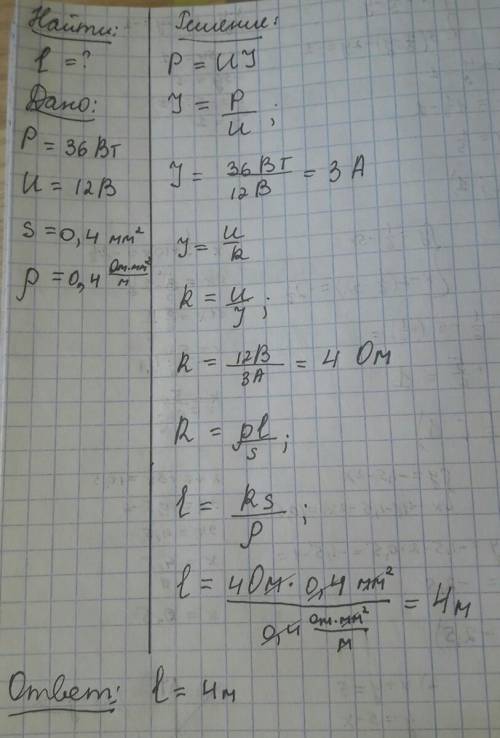 Найти:
l = ?
Дано:
P = 36 Вт
U = 12 В
s = 0,4 мм²
ρ = 0,4 Ом·мм²/м
Решение:
P = UI
I = P/U ;
I = 36 Вт/12 В = 3 А
I = U/R
R = U/I ;
R = 12В/3А = 4 Ом
R = ρl/s ;
l = Rs/ρ ;
l = 4 Ом · 0,4 мм² / 0,4 Ом·мм²/м = 4 м
Ответ: l = 4 м